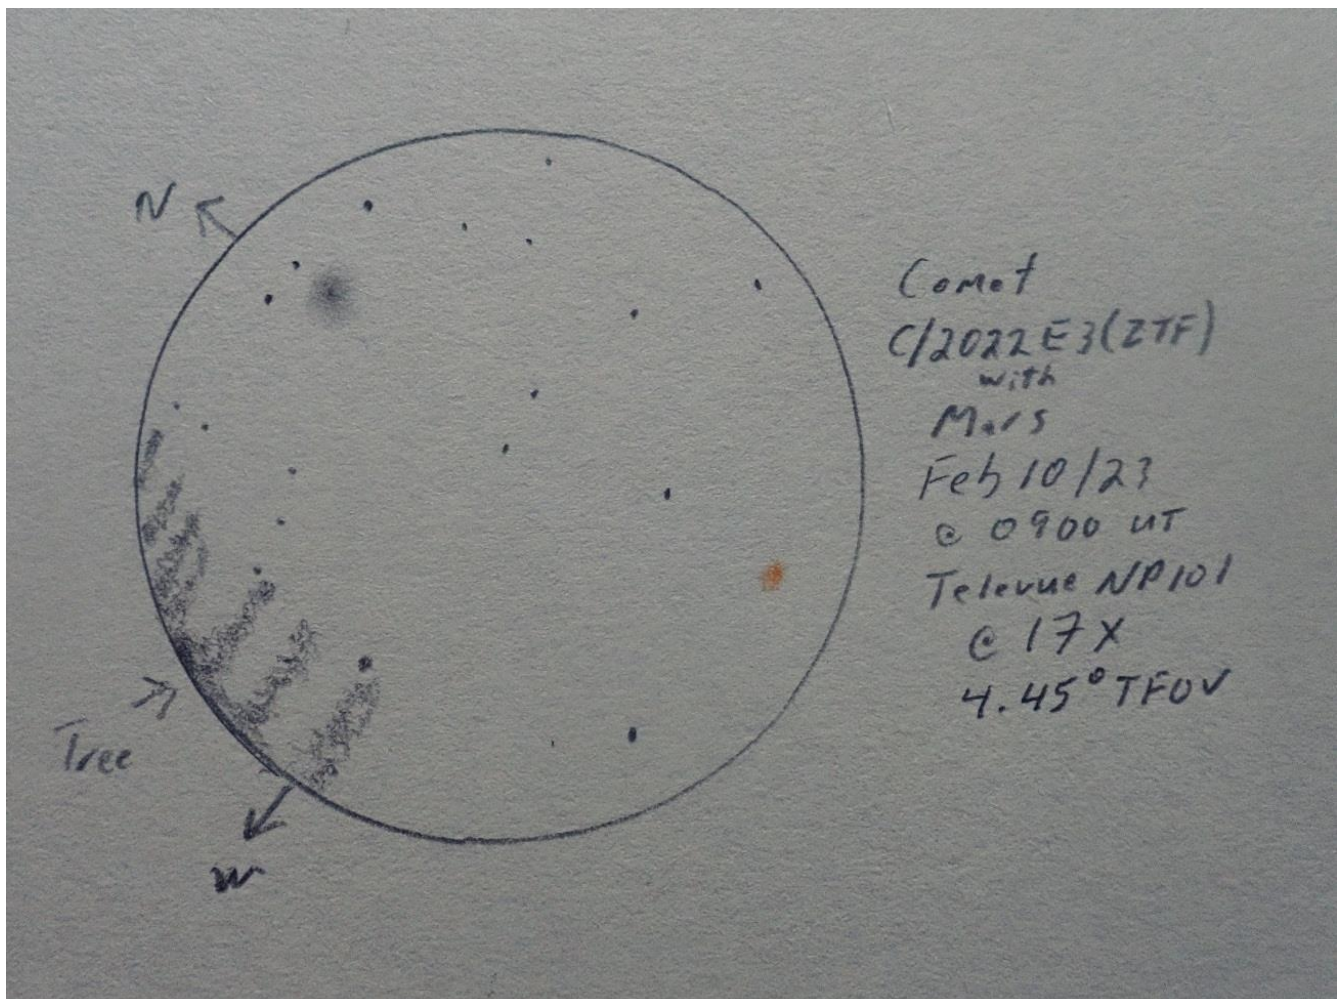 N
Comet
C/2022 E3 (ZTF)
with
Mars
Feb 10/23
@ 0900 UT
Televue NP101
@ 17X
4.45° TFOV
Tree
W